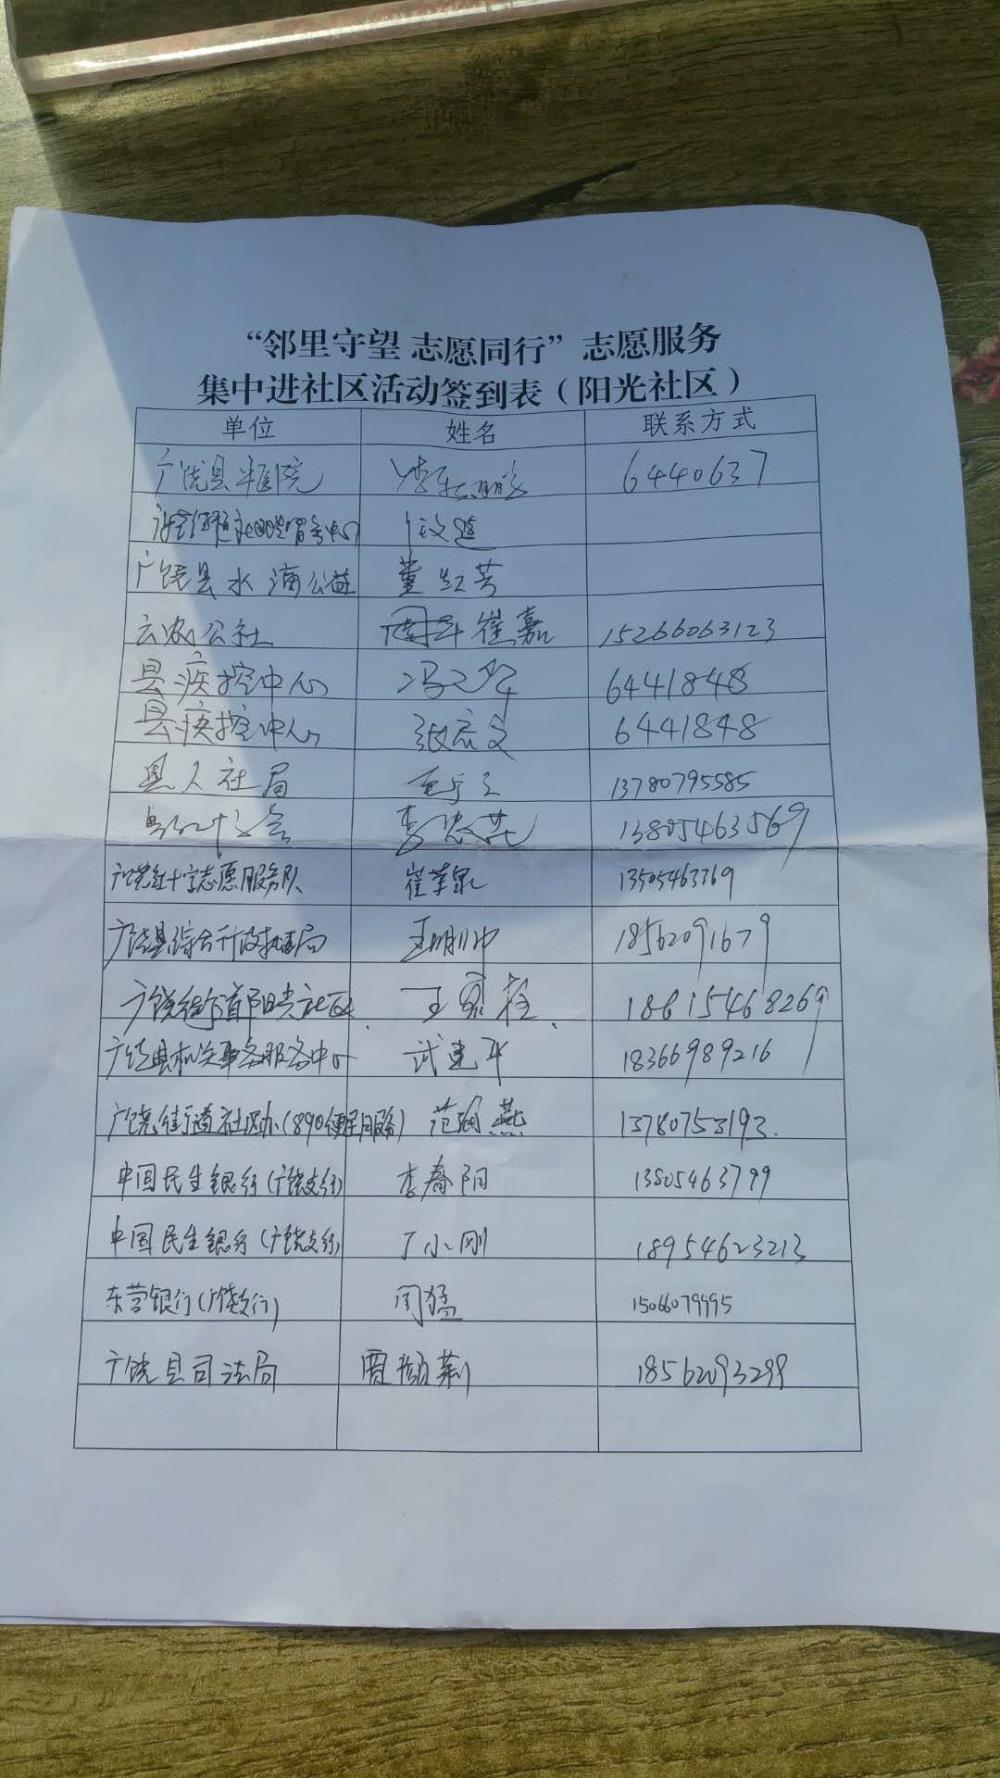 “邻里守望 志愿同行”志愿服务
集中进社区活动签到表（阳光社区）
单位 姓名 联系方式
广饶县中医院 6440637
广饶县水滴公益 董红芳
云农公社 崔嘉 15266063123
县疾控中心 冯 6441848
县疾控中心 张宏文 6441848
县人社局 13780795585
县红十字会 李 13805463569
广饶红十字志愿服务队 崔 泉 13505463769
广饶县综合行政执法局 王 18562091679
广饶街道 阳光社区 王 18615468269
广饶县机关事务服务中心 武建平 18366989216
广饶街道社区办(890便民服务) 范 燕 13780753193.
中国民生银行(广饶支行) 李春阳 13805463799
中国民生银行(广饶支行) 丁小刚 18954623213
东营银行(广饶支行) 闫猛 15066079995
广饶县司法局 贾 18562093299